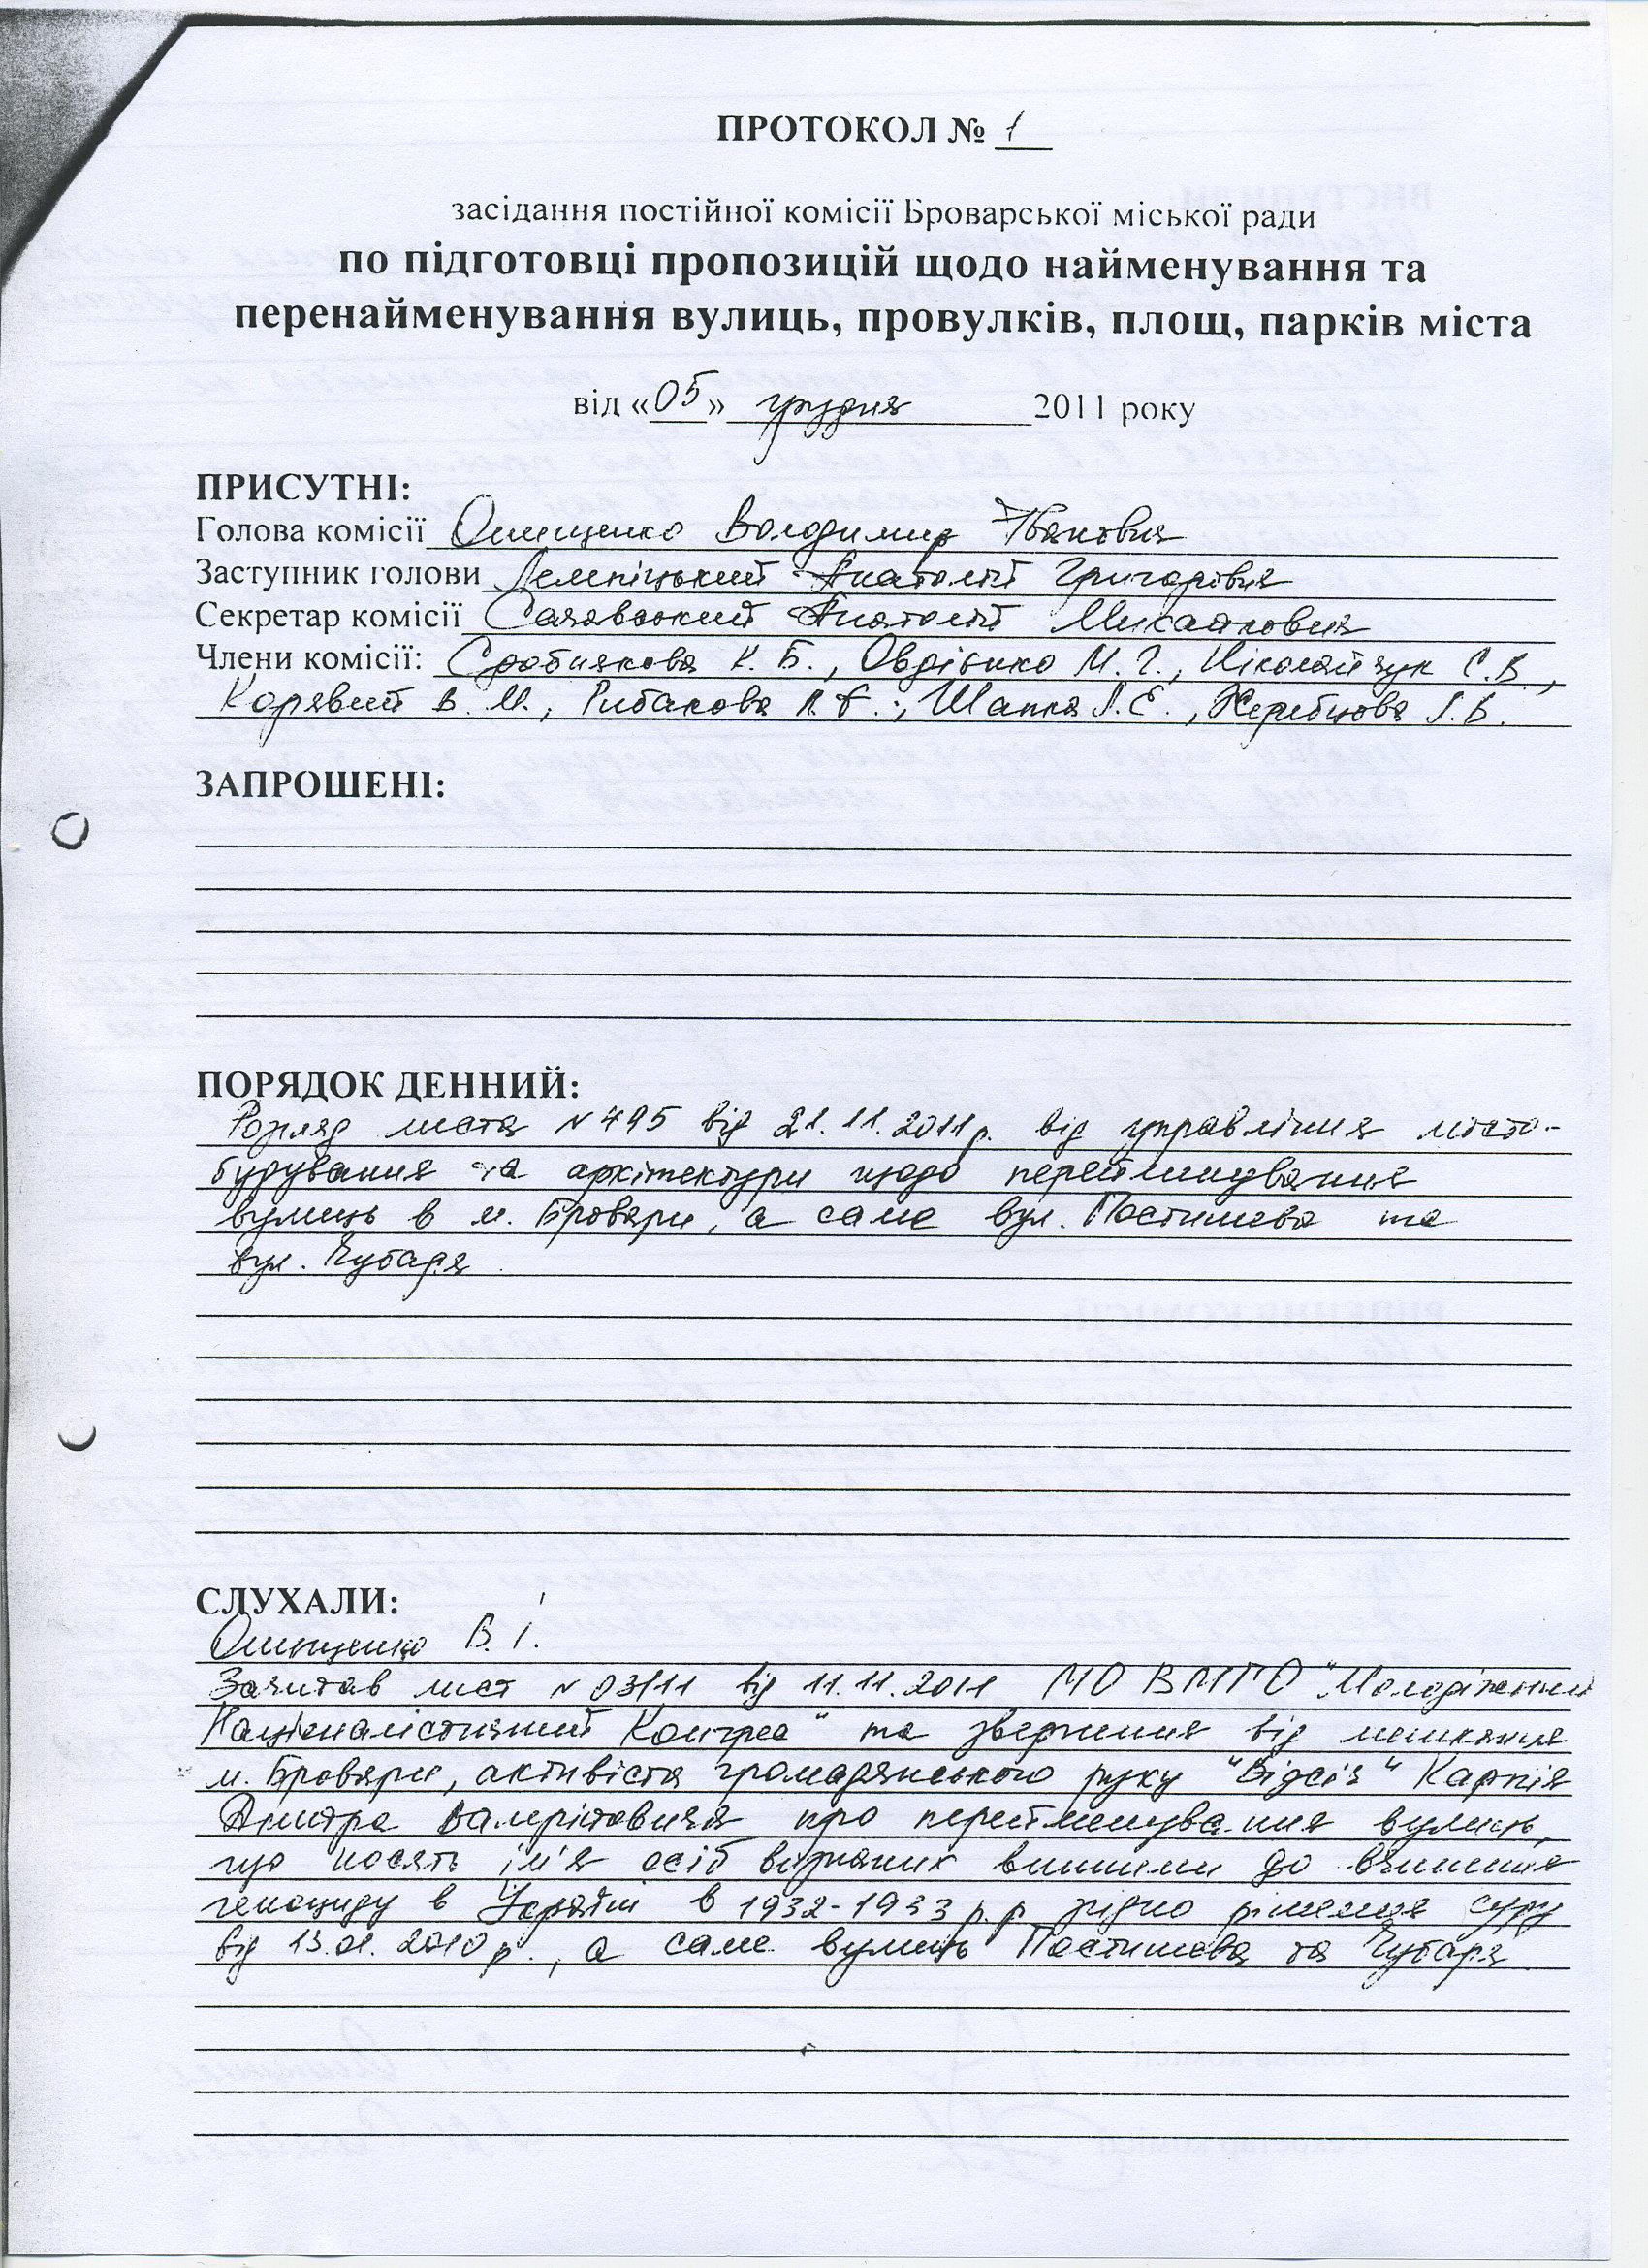 ПРОТОКОЛ № 1
засідання постійної комісії Броварської міської ради
по підготовці пропозицій щодо найменування та
перенайменування вулиць, провулків, площ, парків міста
від «05» грудня 2011 року
ПРИСУТНІ:
Голова комісії Онищенко Володимир Іванович
Заступник голови Лемпіцький Анатолій Григорович
Секретар комісії Анатолій Михайлович
Члени комісії: К. Б., М. Г., Ніколайчук С.В.,
Корявий В. М., Рибакова Л. Є., Шапка Л.Є., Жеребцова Л.В.
ЗАПРОШЕНІ:
ПОРЯДОК ДЕННИЙ:
Розгляд листа № 795 від 21.11.2011р. від управління місто-
будування та архітектури щодо перейменування
вулиць в м. Бровари, а саме вул. Постишева та
вул. Чубаря.
СЛУХАЛИ:
Онищенко В. І.
Зачитав лист № 03/11 від 11.11.2011 МО ВМГО "Молодіжний
Націоналістичний Конгрес" та звернення від мешканця
м. Бровари, активіста громадянського руху "Відсіч" Карпія
Дмитра Валерійовича про перейменування вулиць,
що носять ім'я осіб визнаних винними до вчинення
геноциду в Україні в 1932-1933 р.р згідно рішення суду
від 13.01.2010 р., а саме вулиць Постишева та Чубаря.